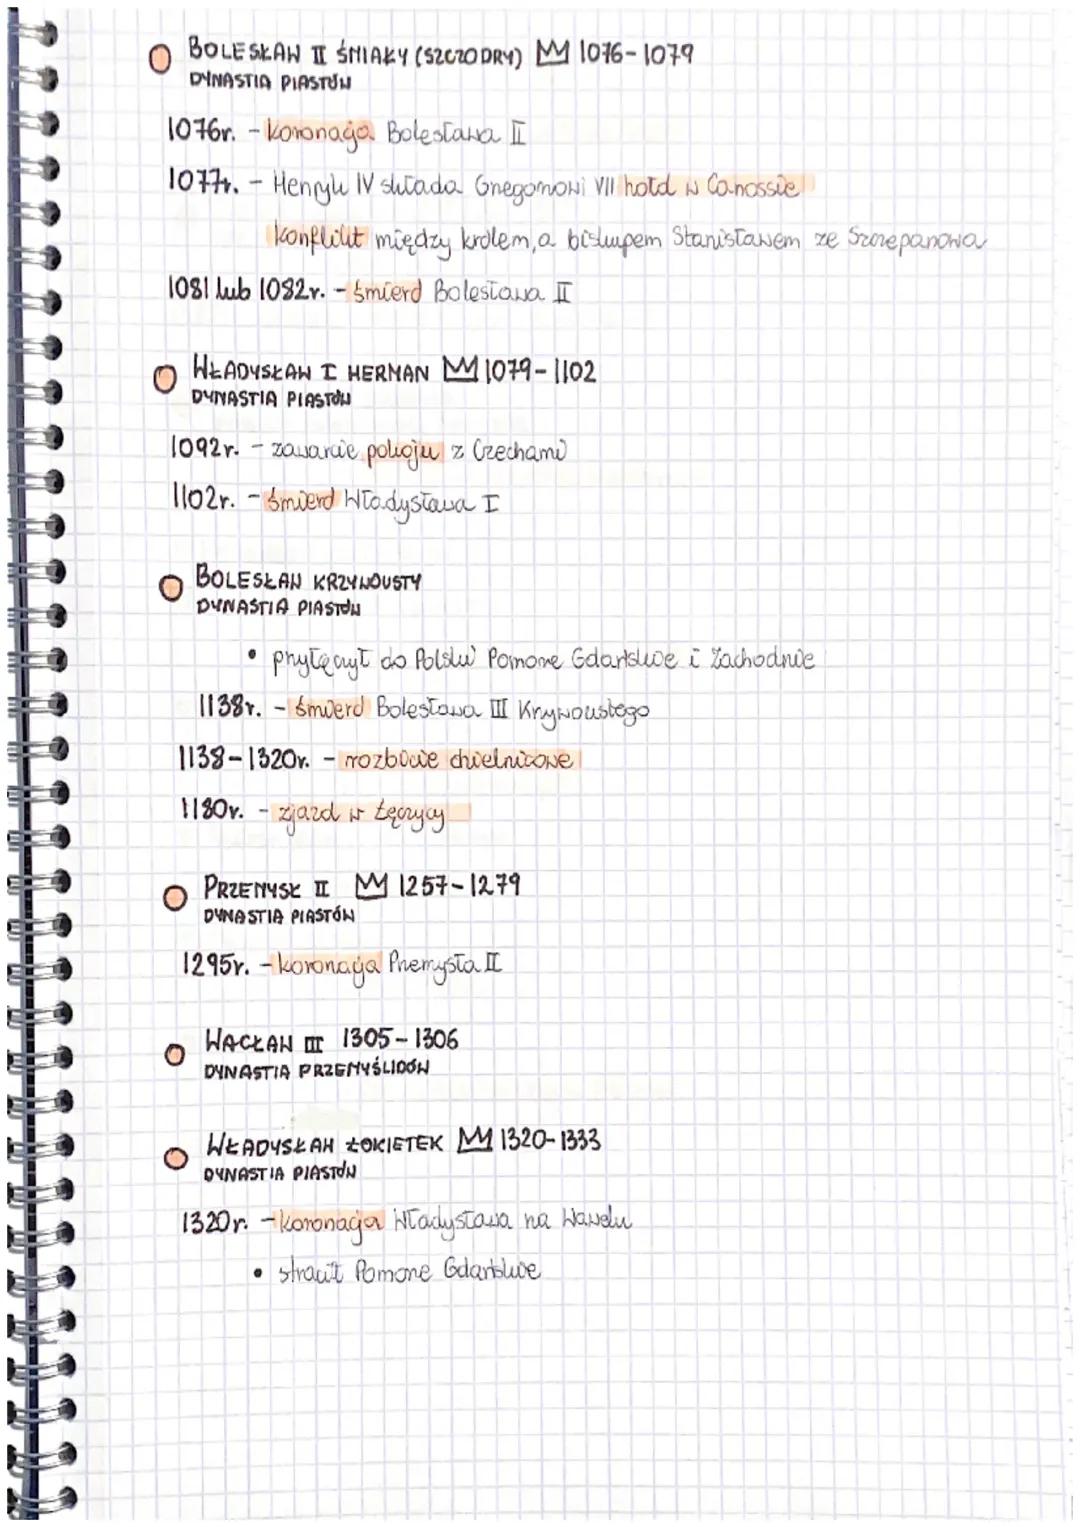 BOLESŁAW II ŚMIAŁY (SZCZODRY) 1076-1079
DYNASTIA PIASTÓW
1076r. - koronacja Bolesława II
1077r. - Henryk IV składa Grzegorzowi VII hołd w Canossie
konflikt między królem, a biskupem Stanisławem ze Szczepanowa
1081 lub 1082r. - śmierć Bolesława II
WŁADYSŁAW I HERMAN 1079-1102
DYNASTIA PIASTÓW
1092r. - zawarcie pokoju z Czechami
1102r. - śmierć Władysława I
BOLESŁAW KRZYWOUSTY
DYNASTIA PIASTÓW
• przyłączył do Polski Pomorze Gdańskie i Zachodnie
1138r. - śmierć Bolesława III Krzywoustego
1138-1320r. - rozbicie dzielnicowe
1180r. - zjazd w Łęczycy
PRZEMYSŁ II 1257-1279
DYNASTIA PIASTÓW
1295r. - koronacja Przemysła II
WACŁAW III 1305-1306
DYNASTIA PRZEMYŚLIDÓW
WŁADYSŁAW ŁOKIETEK 1320-1333
DYNASTIA PIASTÓW
1320r. - koronacja Władysława na Wawelu
• stracił Pomorze Gdańskie